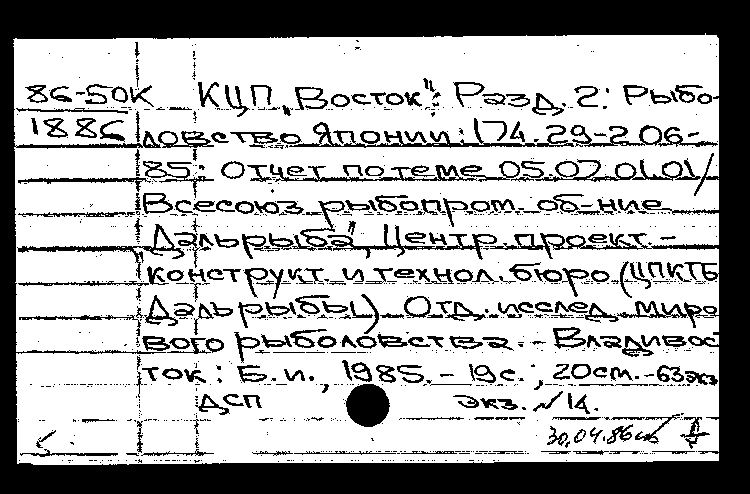 86-50К КЦП „Восток": Разд. 2: Рыбо-
1886 ловство Японии: 174.29-2.06-
85: Отчет по теме 05.02.01.01/
Всесоюз. рыбопром. об-ние
„Дальрыба", Центр. проект.-
конструкт. и технол. бюро (ЦПКТБ
Дальрыбы). Отд. исслед. миро
вого рыболовства. - Владивос
ток: Б.и., 1985. - 19с.; 20см. - 63экз
ДСП экз. №14.
30.04.86